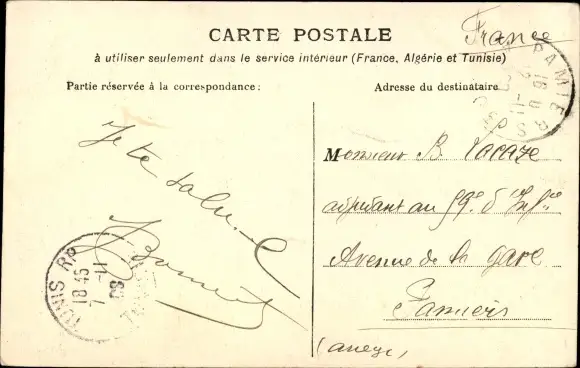 CARTE POSTALE
à utiliser seulement dans le service intérieur (France, Algérie et Tunisie)
Partie réservée à la correspondance :
Adresse du destinataire
France
PAMIERS
Je te salue
Bonnet
TUNIS RP
18 45
7 - 11
09
Monsieur B. Lacaze
adjudant au 59e d'Infie
Avenue de la gare
Pamiers
(Ariège)